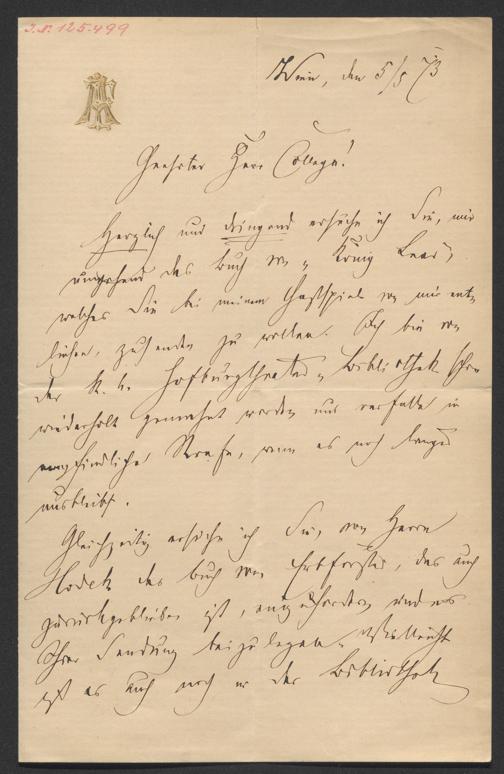 J.N. 125.499
Wien, den 5/5 73
Geehrter Herr College!
Herzlich und dringend ersuche ich Sie, mir
umgehend das Buch von „König Lear",
welches Sie bei meinem Gastspiele von mir ent-
liehen, zusenden zu wollen. Ich bin von
der k. k. Hofburgtheater-Bibliothek schon
wiederholt gemahnt worden und verfalle in
empfindliche Strafe, wenn es noch länger
ausbleibt.
Gleichzeitig ersuche ich Sie, von Herrn
Hodek das Buch vom Erbförster, das auch
zurückgeblieben ist, einzufordern und es
Ihrer Sendung beizulegen. Vielleicht
ist es auch noch in der Bibliothek